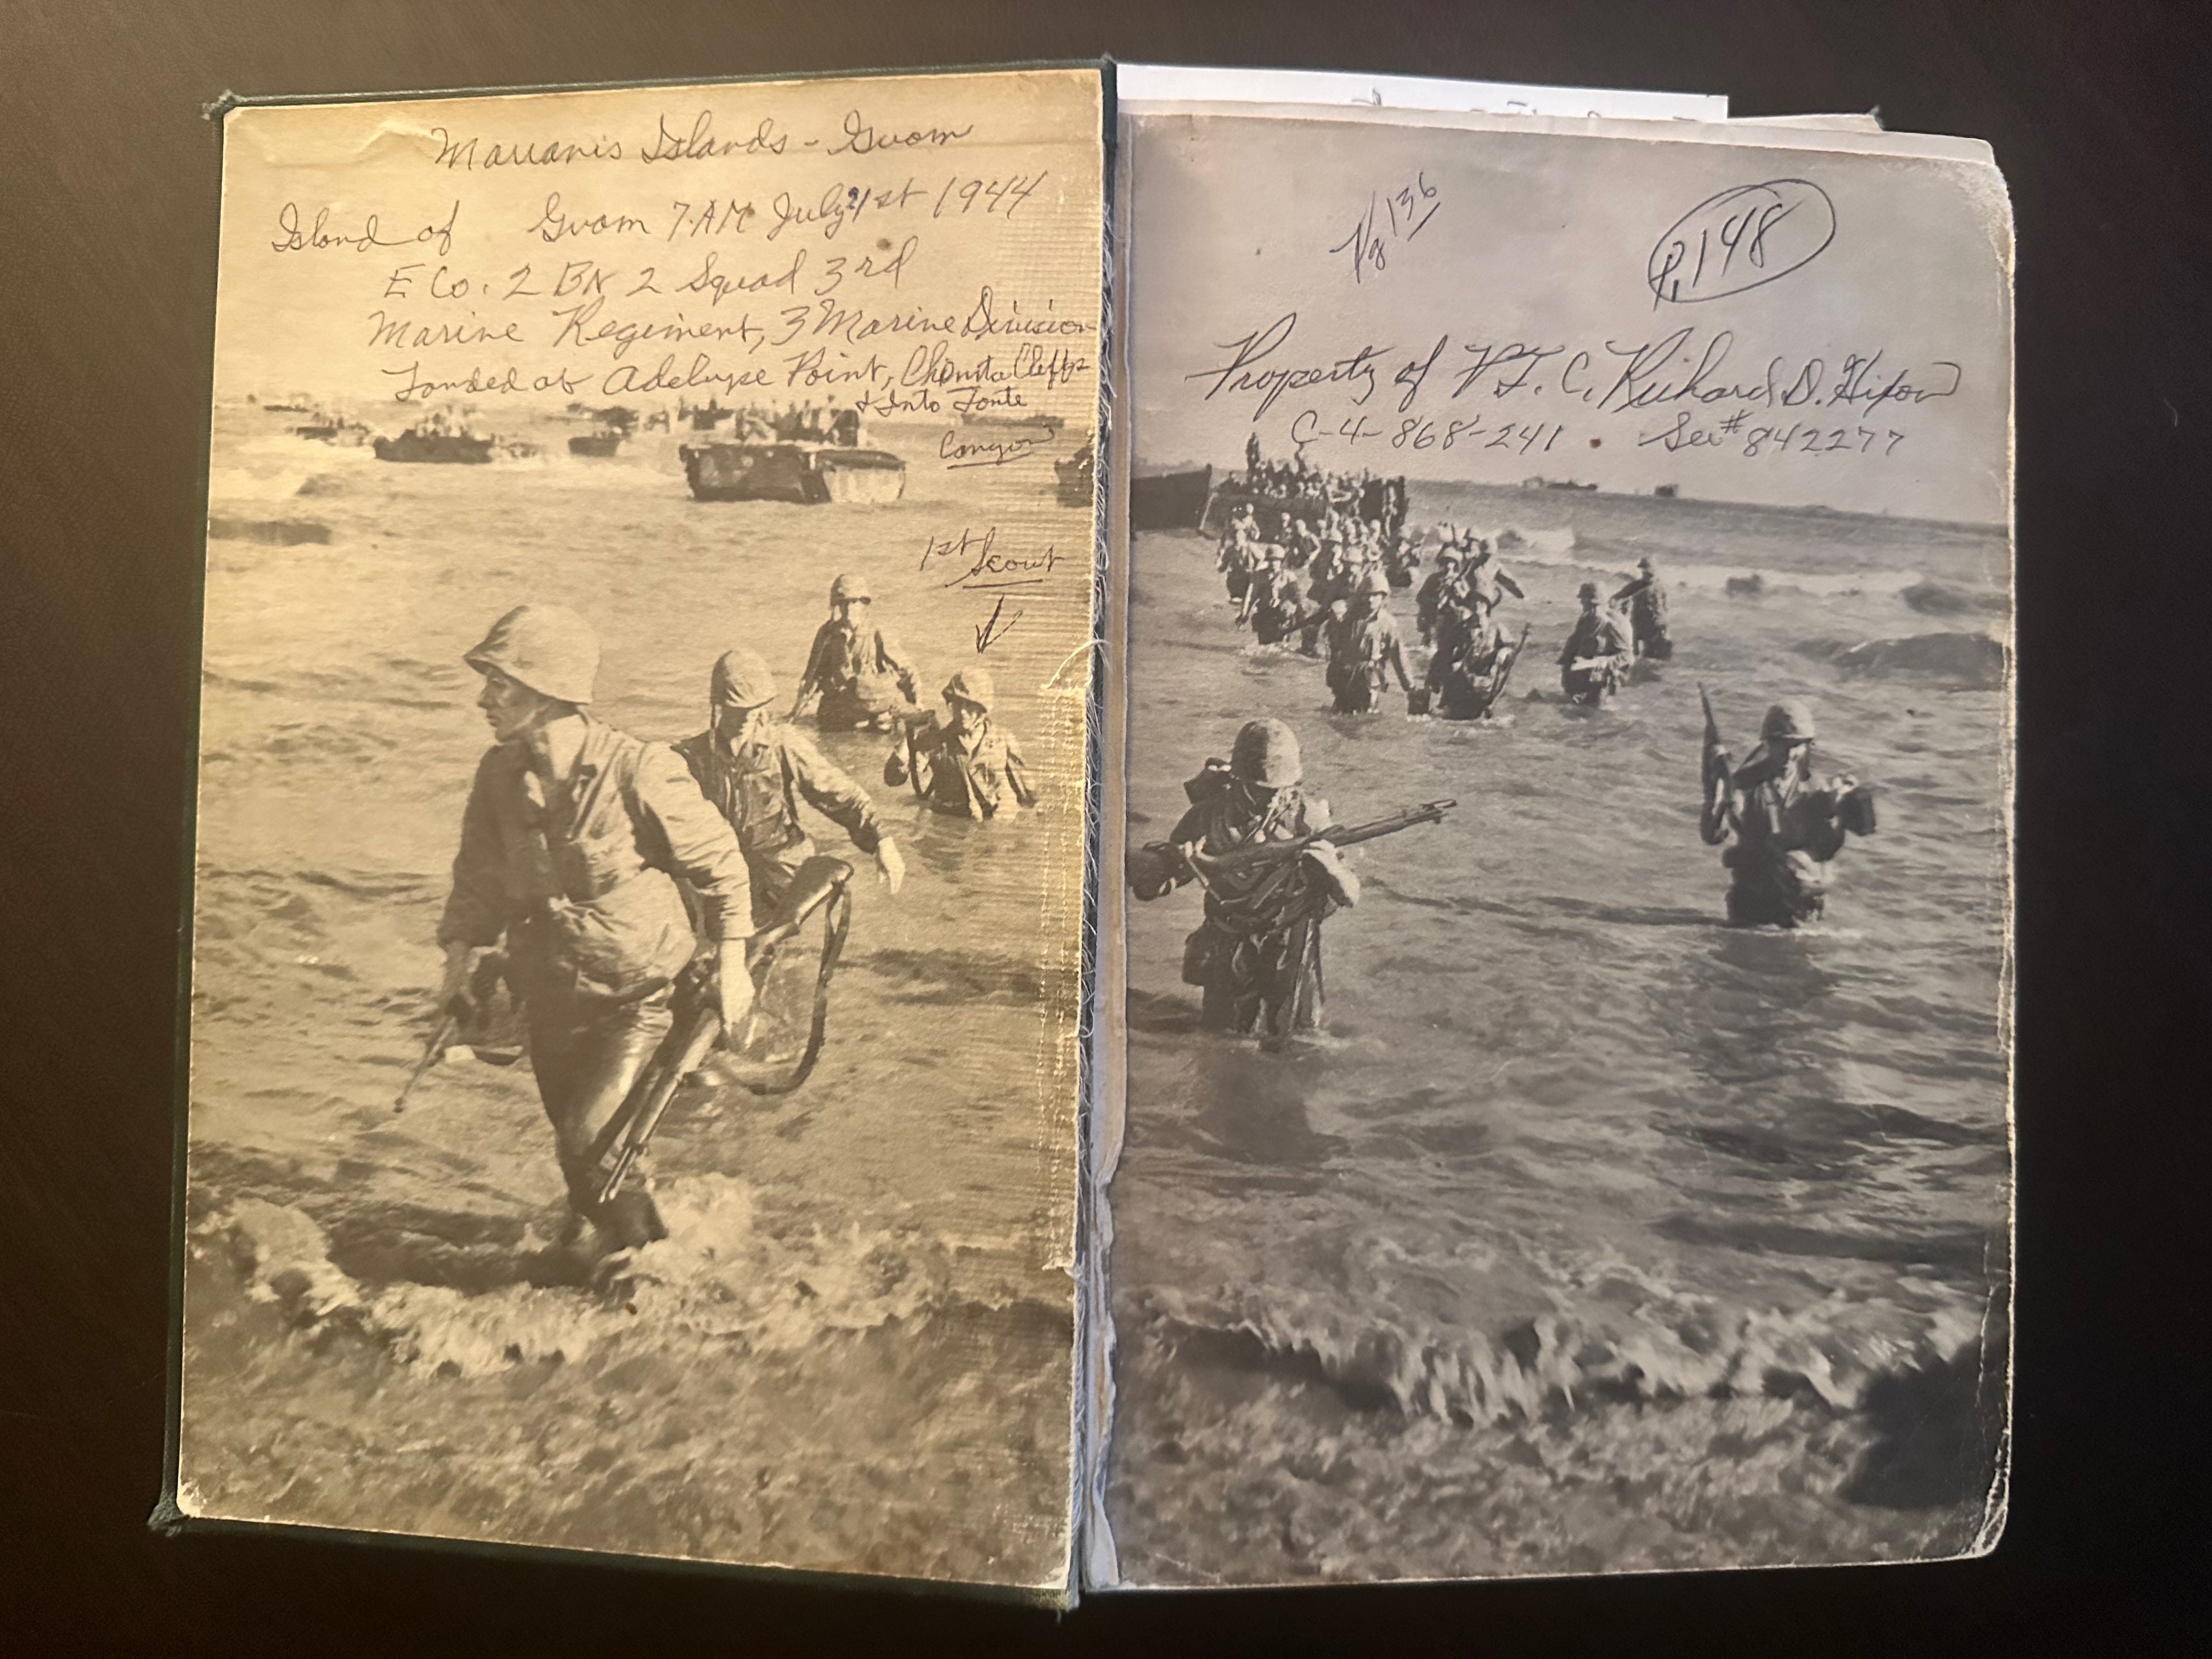 Marianis Islands - Guam
Island of Guam 7AM July 21st 1944
E Co. 2 BN 2 Squad 3rd
Marine Regiment, 3 Marine Division
Landed at Adelupe Point, Chonita Cliffs
& Into Fonte
Canyon
1st Scout
Pg 136
P, 148
Property of P.F.C. Richard D. Hixon
C-4-868-241 . Ser# 842277